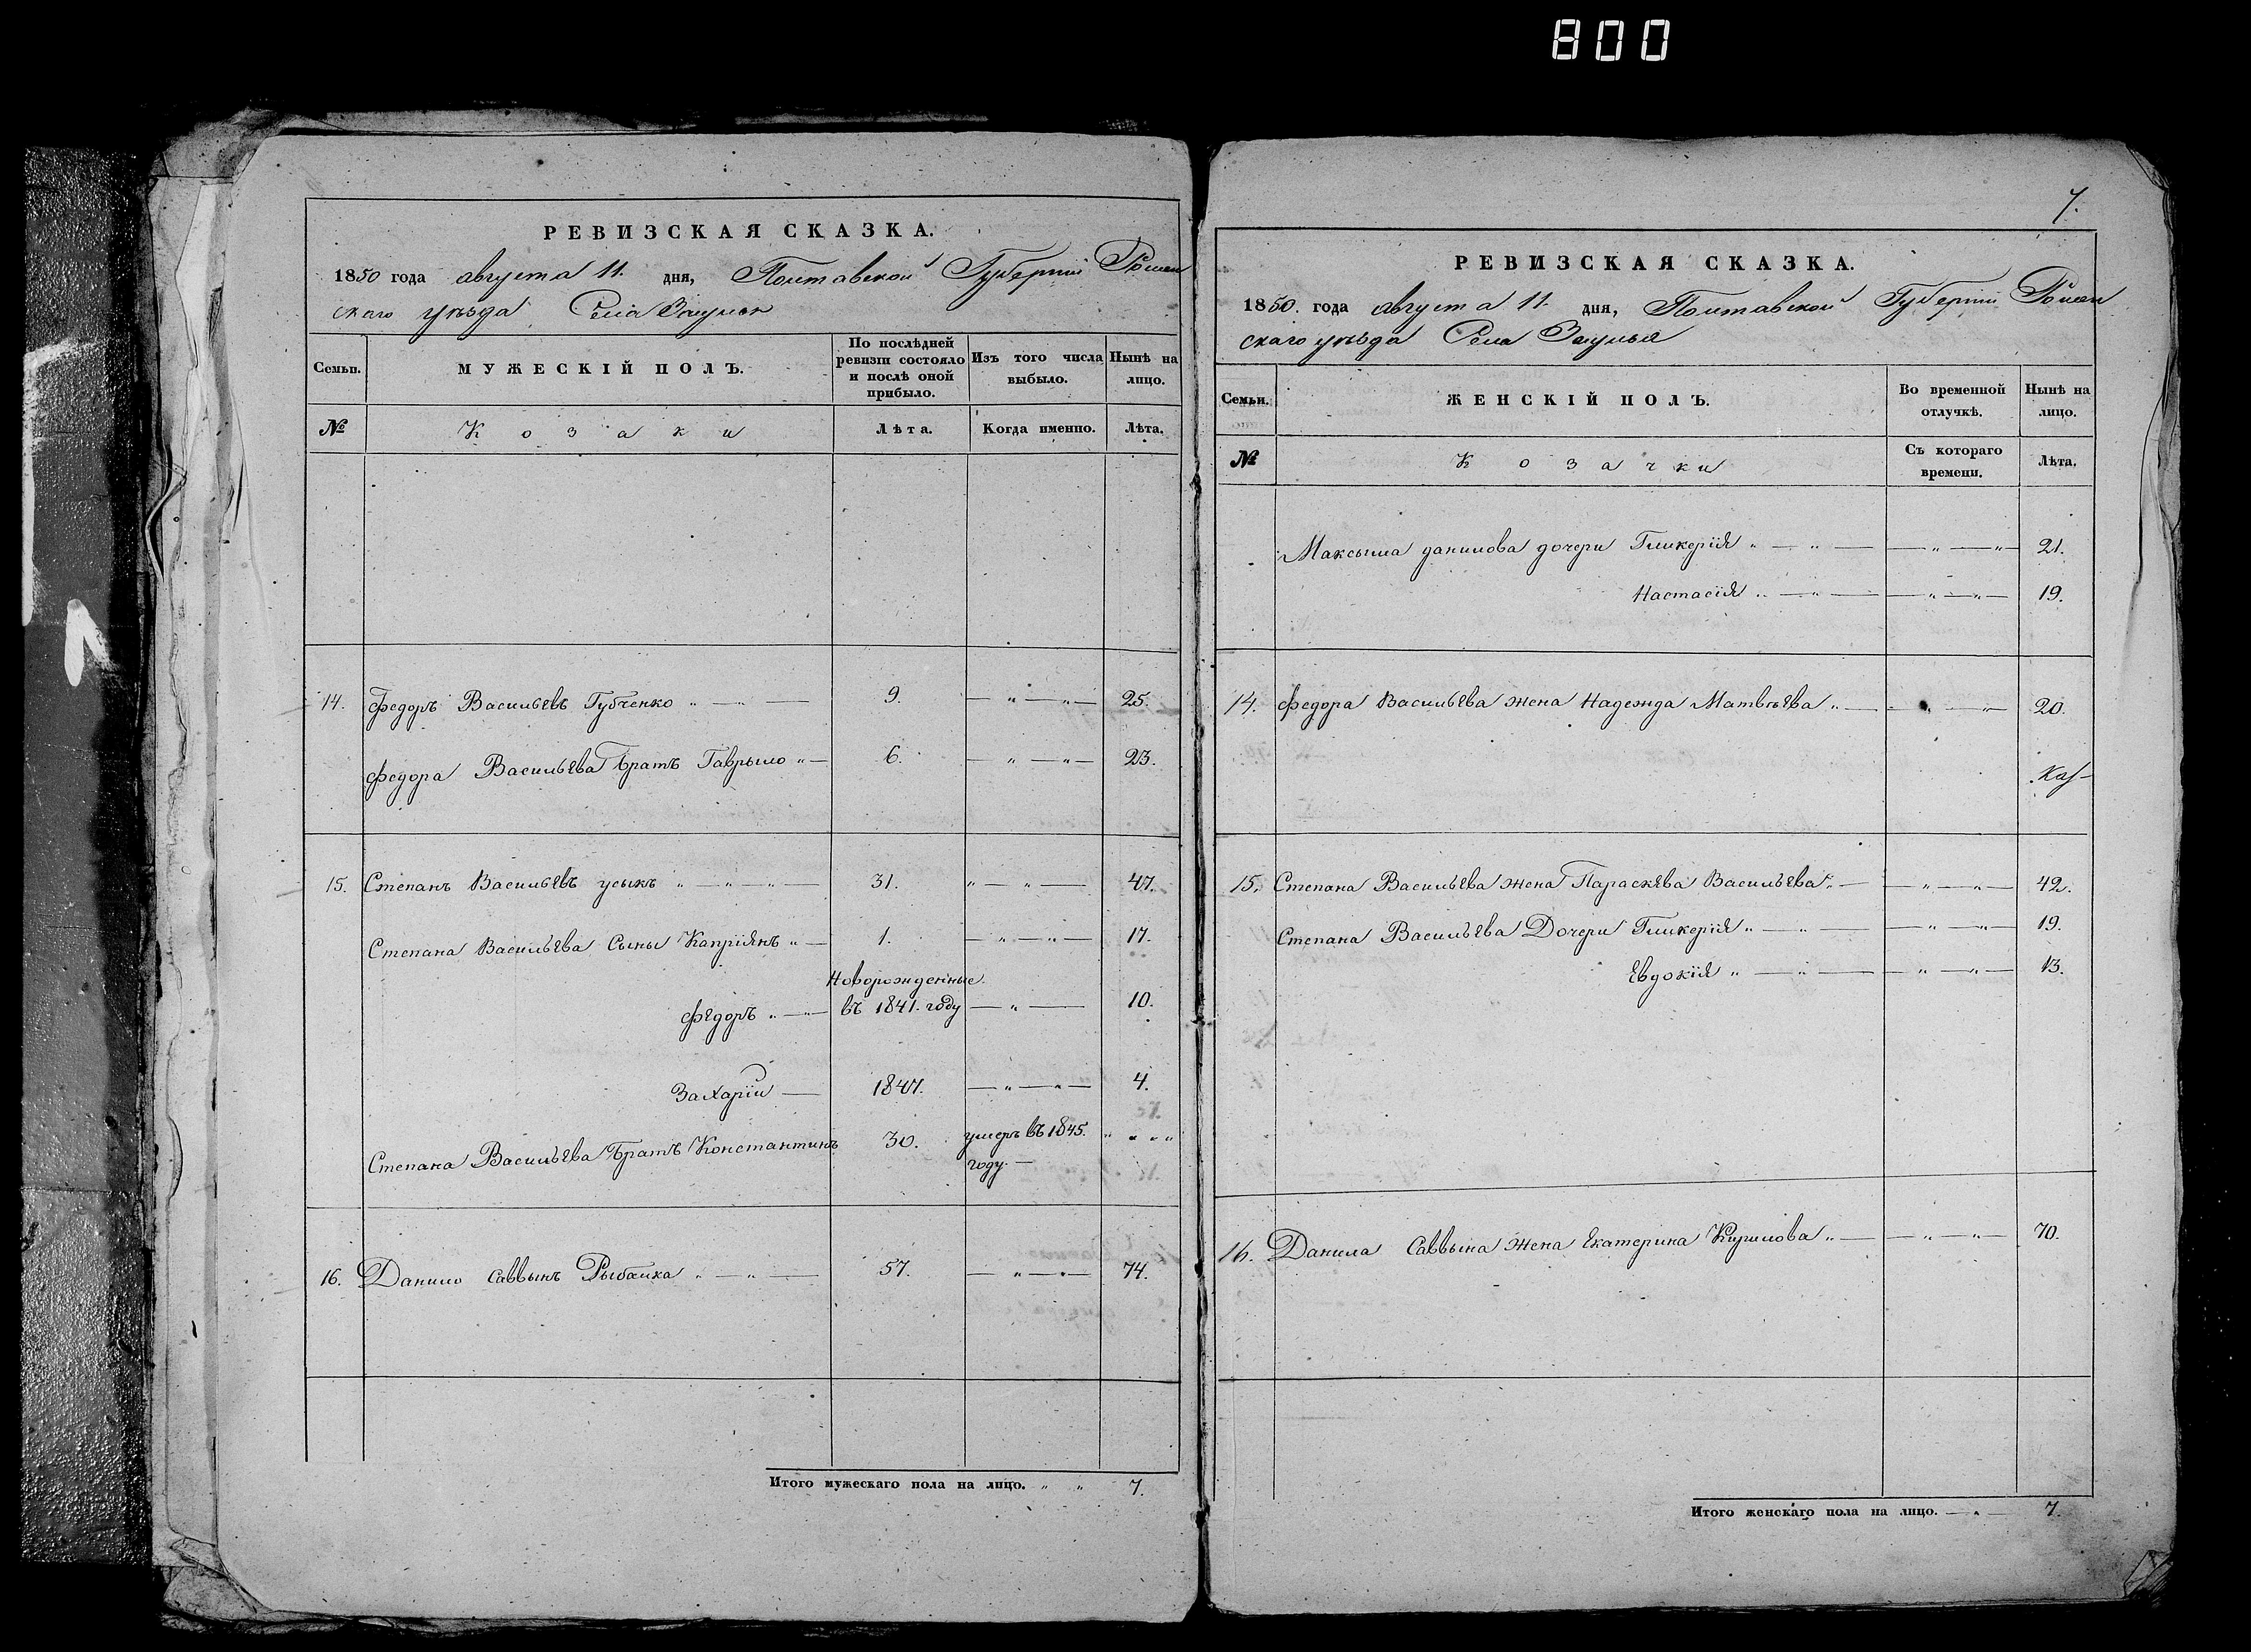 800
РЕВИЗСКАЯ СКАЗКА.
1850 года августа 11. дня, Полтавской Губерніи Ромен
скаго уѣзда Села
Семьи. МУЖЕСКІЙ ПОЛЪ. По послѣдней ревизіи состояло и послѣ оной прибыло. Изъ того числа выбыло. Нынѣ на лицо.
№ Козаки Лѣта. Когда именно. Лѣта.
14. Федоръ Васильевъ Губченко 9. 25.
Федора Васильева Братъ Гаврыло 6. 23.
15. Степанъ Васильевъ усыкъ 31. 47.
Степана Васильева Сыны Капріянъ 1. 17.
Новорожденные
Федоръ въ 1841. году 10.
Захарій 1847. 4.
Степана Васильева Братъ Константинъ 30. умеръ въ 1845.
году
16. Данило Саввынъ Рыбалка 57. 74.
Итого мужескаго пола на лицо. 7.
7.
РЕВИЗСКАЯ СКАЗКА.
1850. года августа 11. дня, Полтавской Губерніи Ромен
скаго уѣзда Села
Семьи. ЖЕНСКІЙ ПОЛЪ. Во временной отлучкѣ. Нынѣ на лицо.
№ Козачки Съ котораго времени. Лѣта.
Максыма данилова дочери Гликерія 21.
Настасія 19.
14. Федора Васильева жена Надежда Матвѣева 20.
15. Степана Васильева жена Параскева Васильева 42.
Степана Васильева Дочери Гликерія 19.
Евдокія 13.
16. Данила Саввына жена Екатерина Кирилова 70.
Итого женскаго пола на лицо. 7.